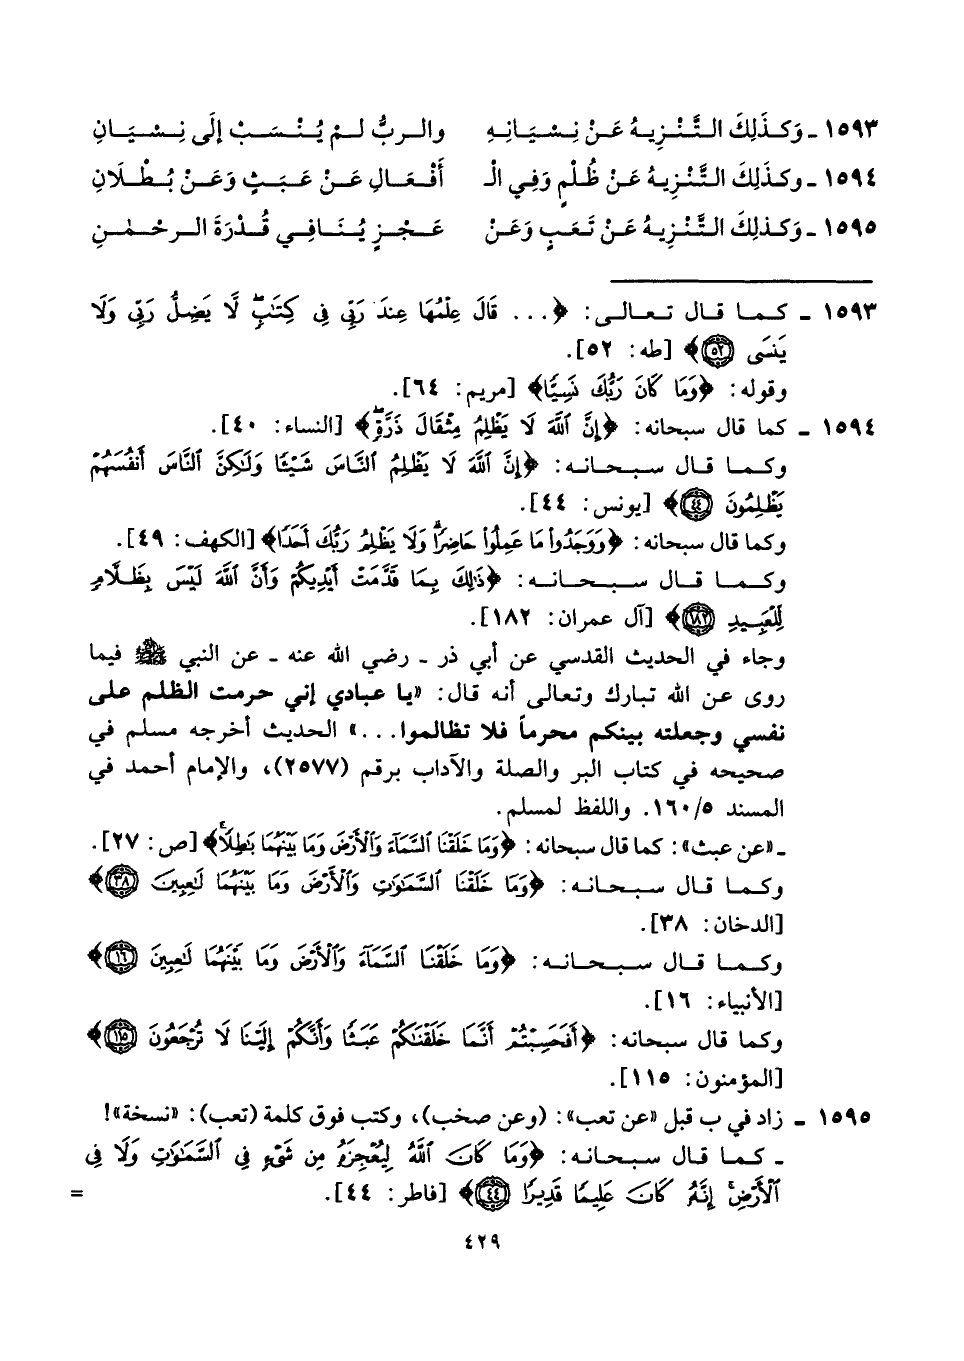 ١٥٩٣ ـ وَكَذَلِكَ التَّنْزِيهُ عَنْ نِسْيَانِهِ والربُّ لمْ يُنْسَبْ إلَى نِسْيَانِ
١٥٩٤ ـ وكذلِكَ التَّنْزِيهُ عَنْ ظُلْمٍ وَفِي الْـ أَفْعَالِ عَنْ عَبَثٍ وَعَنْ بُطْلَانِ
١٥٩٥ ـ وَكذلِكَ التَّنْزِيهُ عَنْ تَعَبٍ وَعَنْ عَجْزٍ يُنَافِي قُدْرَةَ الرحْمٰنِ
١٥٩٣ ـ كما قال تعالى: ﴿... قَالَ عِلْمُهَا عِندَ رَبِّى فِى كِتَٰبٍۖ لَّا يَضِلُّ رَبِّى وَلَا
يَنسَى ٥٢﴾ [طه: ٥٢].
وقوله: ﴿وَمَا كَانَ رَبُّكَ نَسِيًّا﴾ [مريم: ٦٤].
١٥٩٤ ـ كما قال سبحانه: ﴿إِنَّ ٱللَّهَ لَا يَظْلِمُ مِثْقَالَ ذَرَّةٍۖ﴾ [النساء: ٤٠].
وكما قال سبحانه: ﴿إِنَّ ٱللَّهَ لَا يَظْلِمُ ٱلنَّاسَ شَيْـًٔا وَلَٰكِنَّ ٱلنَّاسَ أَنفُسَهُمْ
يَظْلِمُونَ ٤٤﴾ [يونس: ٤٤].
وكما قال سبحانه: ﴿وَوَجَدُوا۟ مَا عَمِلُوا۟ حَاضِرًاۗ وَلَا يَظْلِمُ رَبُّكَ أَحَدًا﴾ [الكهف: ٤٩].
وكما قال سبحانه: ﴿ذَٰلِكَ بِمَا قَدَّمَتْ أَيْدِيكُمْ وَأَنَّ ٱللَّهَ لَيْسَ بِظَلَّامٍ
لِّلْعَبِيدِ ١٨٢﴾ [آل عمران: ١٨٢].
وجاء في الحديث القدسي عن أبي ذر ـ رضي الله عنه ـ عن النبي ﷺ فيما
روى عن الله تبارك وتعالى أنه قال: «يا عبادي إني حرمت الظلم على
نفسي وجعلته بينكم محرماً فلا تظالموا...» الحديث أخرجه مسلم في
صحيحه في كتاب البر والصلة والآداب برقم (٢٥٧٧)، والإمام أحمد في
المسند ١٦٠/٥. واللفظ لمسلم.
ـ «عن عبث»: كما قال سبحانه: ﴿وَمَا خَلَقْنَا ٱلسَّمَآءَ وَٱلْأَرْضَ وَمَا بَيْنَهُمَا بَٰطِلًاۚ﴾ [ص: ٢٧].
وكما قال سبحانه: ﴿وَمَا خَلَقْنَا ٱلسَّمَٰوَٰتِ وَٱلْأَرْضَ وَمَا بَيْنَهُمَا لَٰعِبِينَ ٣٨﴾
[الدخان: ٣٨].
وكما قال سبحانه: ﴿وَمَا خَلَقْنَا ٱلسَّمَآءَ وَٱلْأَرْضَ وَمَا بَيْنَهُمَا لَٰعِبِينَ ١٦﴾
[الأنبياء: ١٦].
وكما قال سبحانه: ﴿أَفَحَسِبْتُمْ أَنَّمَا خَلَقْنَٰكُمْ عَبَثًا وَأَنَّكُمْ إِلَيْنَا لَا تُرْجَعُونَ ١١٥﴾
[المؤمنون: ١١٥].
١٥٩٥ ـ زاد في ب قبل «عن تعب»: (وعن صخب)، وكتب فوق كلمة (تعب): «نسخة»!
ـ كما قال سبحانه: ﴿وَمَا كَانَ ٱللَّهُ لِيُعْجِزَهُۥ مِن شَىْءٍ فِى ٱلسَّمَٰوَٰتِ وَلَا فِى
ٱلْأَرْضِۚ إِنَّهُۥ كَانَ عَلِيمًا قَدِيرًا ٤٤﴾ [فاطر: ٤٤]. =
٤٢٩